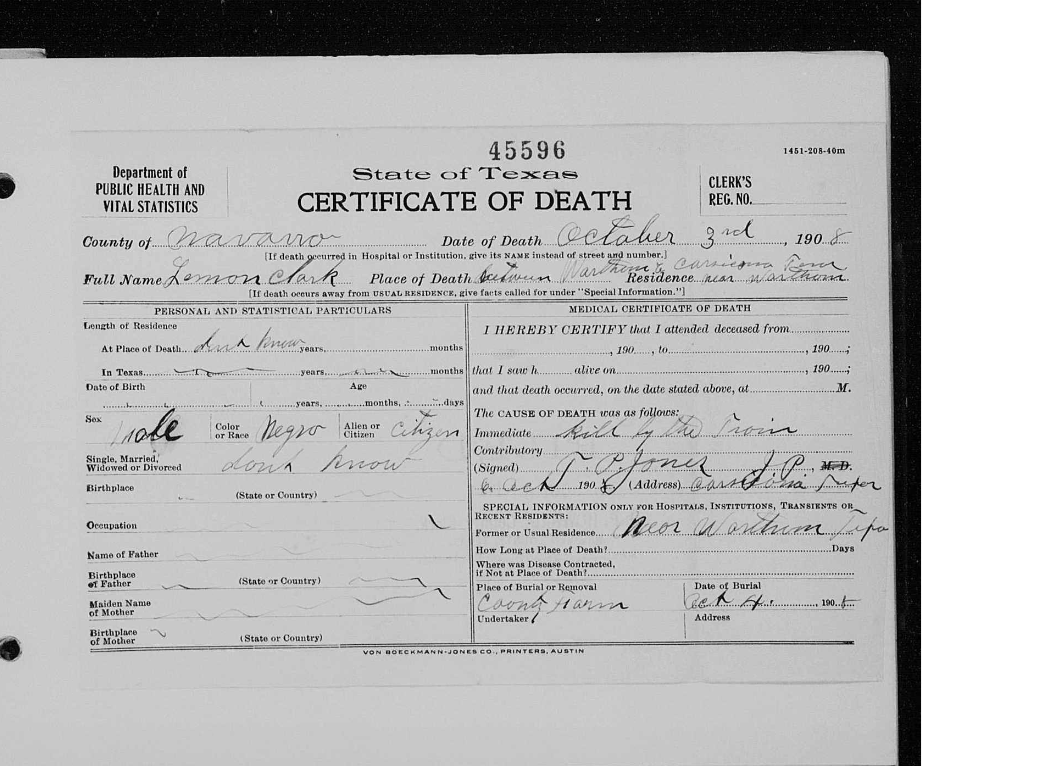 45596
1451-208-40m
Department of
PUBLIC HEALTH AND
VITAL STATISTICS
State of Texas
CERTIFICATE OF DEATH
CLERK'S
REG. NO.
County of Navarro Date of Death October 3rd, 1908
[If death occurred in Hospital or Institution, give its NAME instead of street and number.]
Full Name Lemon Clark Place of Death between Residence near
[If death occurs away from USUAL RESIDENCE, give facts called for under "Special Information."]
PERSONAL AND STATISTICAL PARTICULARS
Length of Residence
At Place of Death dont know years, months
In Texas years, months
Date of Birth Age
years, months, days
Sex Male Color or Race Negro Alien or Citizen Citizen
Single, Married, Widowed or Divorced dont know
Birthplace (State or Country)
Occupation
Name of Father
Birthplace of Father (State or Country)
Maiden Name of Mother
Birthplace of Mother (State or Country)
MEDICAL CERTIFICATE OF DEATH
I HEREBY CERTIFY that I attended deceased from
, 190 , to , 190 ;
that I saw h alive on , 190 ;
and that death occurred, on the date stated above, at M.
The CAUSE OF DEATH was as follows:
Immediate kill by the Train
Contributory
(Signed) T. P. Jones J. P. M. D.
6 Oct 1908 (Address)
SPECIAL INFORMATION ONLY FOR HOSPITALS, INSTITUTIONS, TRANSIENTS OR
RECENT RESIDENTS:
Former or Usual Residence Near
How Long at Place of Death? Days
Where was Disease Contracted,
if Not at Place of Death?
Place of Burial or Removal Date of Burial
County Farm Oct 4. 1908
Undertaker Address
VON BOECKMANN-JONES CO., PRINTERS, AUSTIN